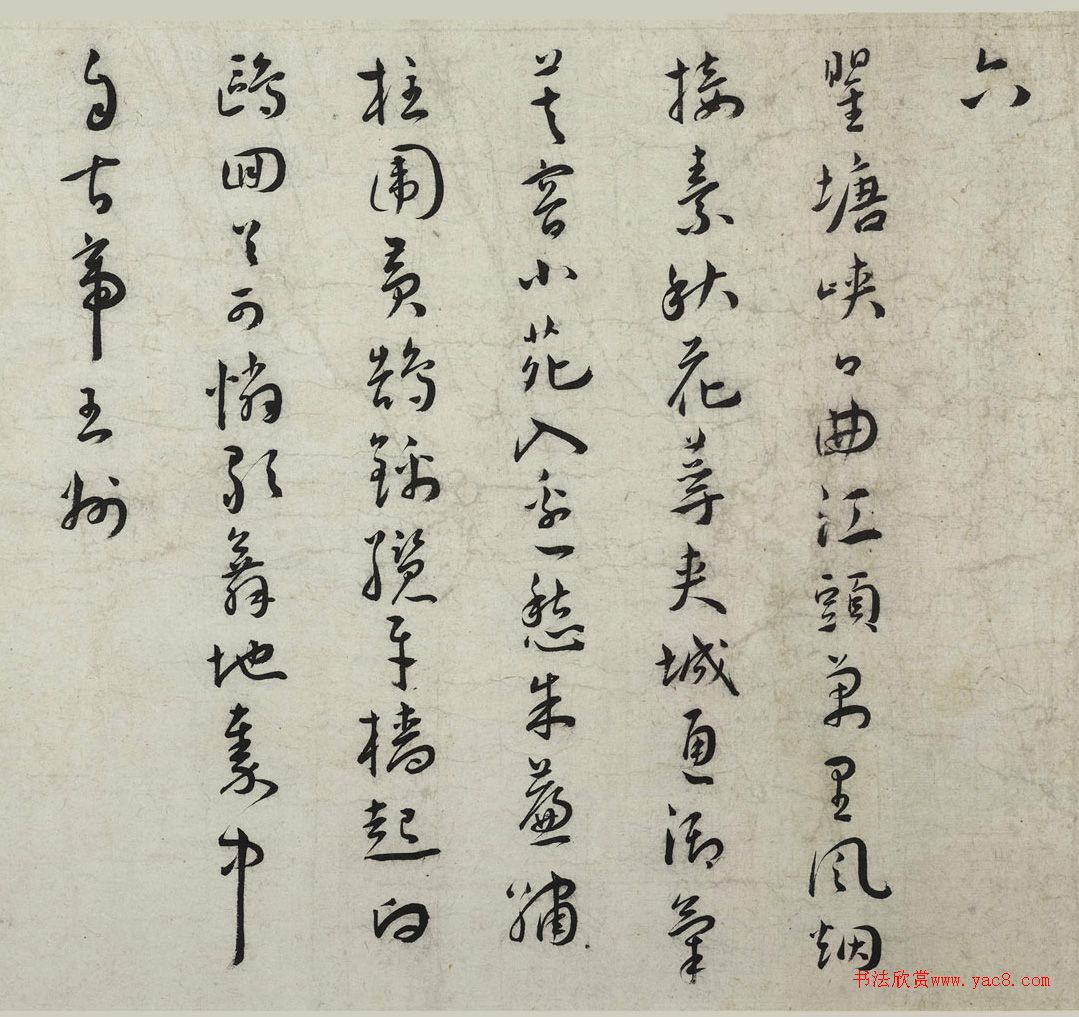 六
瞿塘峽口曲江頭萬里風烟
接素秋花萼夾城通御氣
芙容小苑入邊愁朱簾繡
柱圍黃鵠錦纜牙檣起白
鷗回首可憐歌舞地秦中
自古帝王州
书法欣赏www.yac8.com